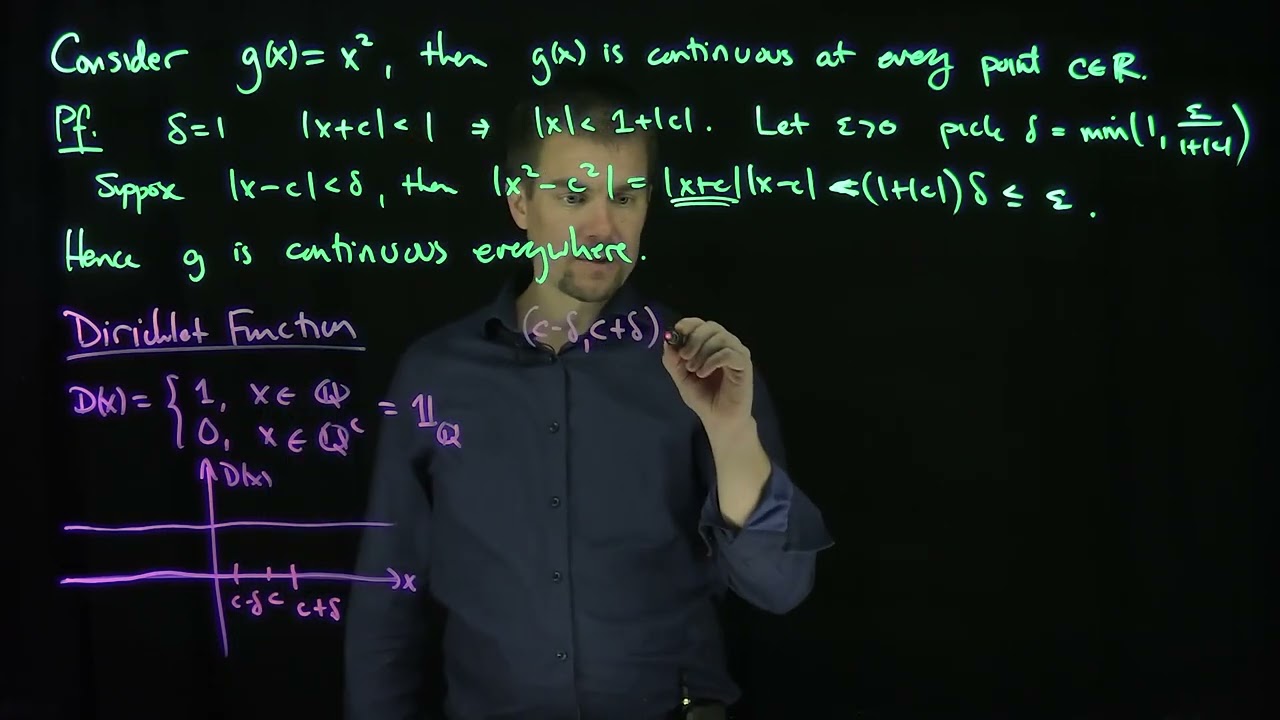 Consider g(x) = x², then g(x) is continuous at every point c∈ℝ.
Pf. δ=1 |x+c|<1 ⇒ |x|<1+|c|. Let ε>0 pick δ = min(1, ε/(1+|c|))
Suppose |x-c|<δ, then |x²-c²| = |x+c||x-c| < (1+|c|)δ ≤ ε.
Hence g is continuous everywhere.
Dirichlet Function
(c-δ, c+δ)
D(x) = { 1, x∈ℚ
0, x∈ℚᶜ = 𝟙_ℚ
D(x)
x
c-δ c c+δ